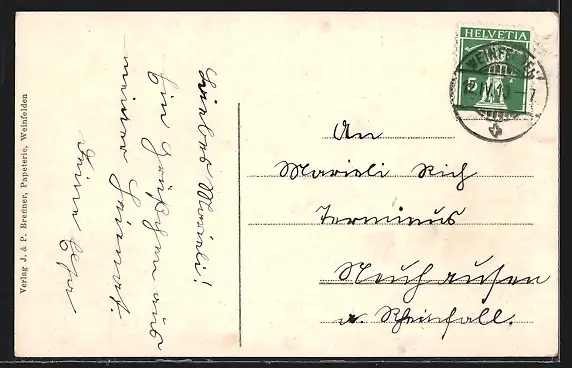 Verlag J. & P. Brenner, Papeterie, Weinfelden
Liebes Marieli!
Ein Grüßchen aus
meiner Heimat.
Deine
HELVETIA
5
WEINFELDEN
12.IV.
An
Marieli Rich
Terminus
Neuhausen
a. Rheinfall.